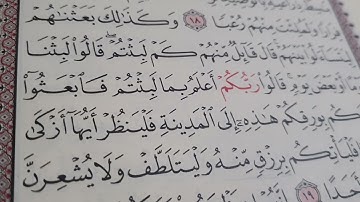 فِرَارًا وَلَمُلِئْتَ مِنْهُمْ رُعْبًا ١٨ وَكَذَٰلِكَ بَعَثْنَٰهُمْ
لِيَتَسَآءَلُوا۟ بَيْنَهُمْ قَالَ قَآئِلٌ مِّنْهُمْ كَمْ لَبِثْتُمْ قَالُوا۟ لَبِثْنَا
يَوْمًا أَوْ بَعْضَ يَوْمٍ قَالُوا۟ رَبُّكُمْ أَعْلَمُ بِمَا لَبِثْتُمْ فَٱبْعَثُوٓا۟
أَحَدَكُم بِوَرِقِكُمْ هَٰذِهِۦٓ إِلَى ٱلْمَدِينَةِ فَلْيَنظُرْ أَيُّهَآ أَزْكَىٰ
طَعَامًا فَلْيَأْتِكُم بِرِزْقٍ مِّنْهُ وَلْيَتَلَطَّفْ وَلَا يُشْعِرَنَّ
بِكُمْ أَحَدًا ١٩ إِنَّهُمْ